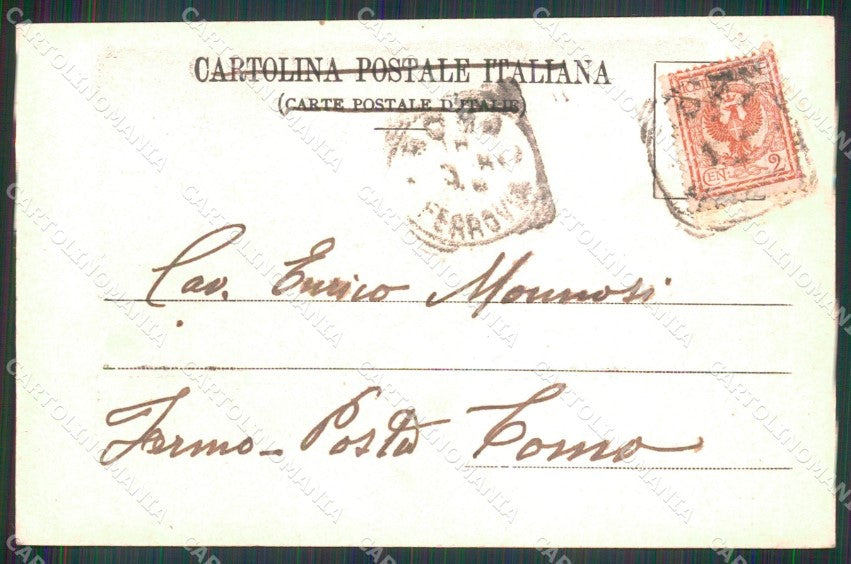 CARTOLINA POSTALE ITALIANA
(CARTE POSTALE D'ITALIE)
CEN. 2
FERROVIA
Cav. Enrico
Fermo-Posta Como
CARTOLINOMANIA